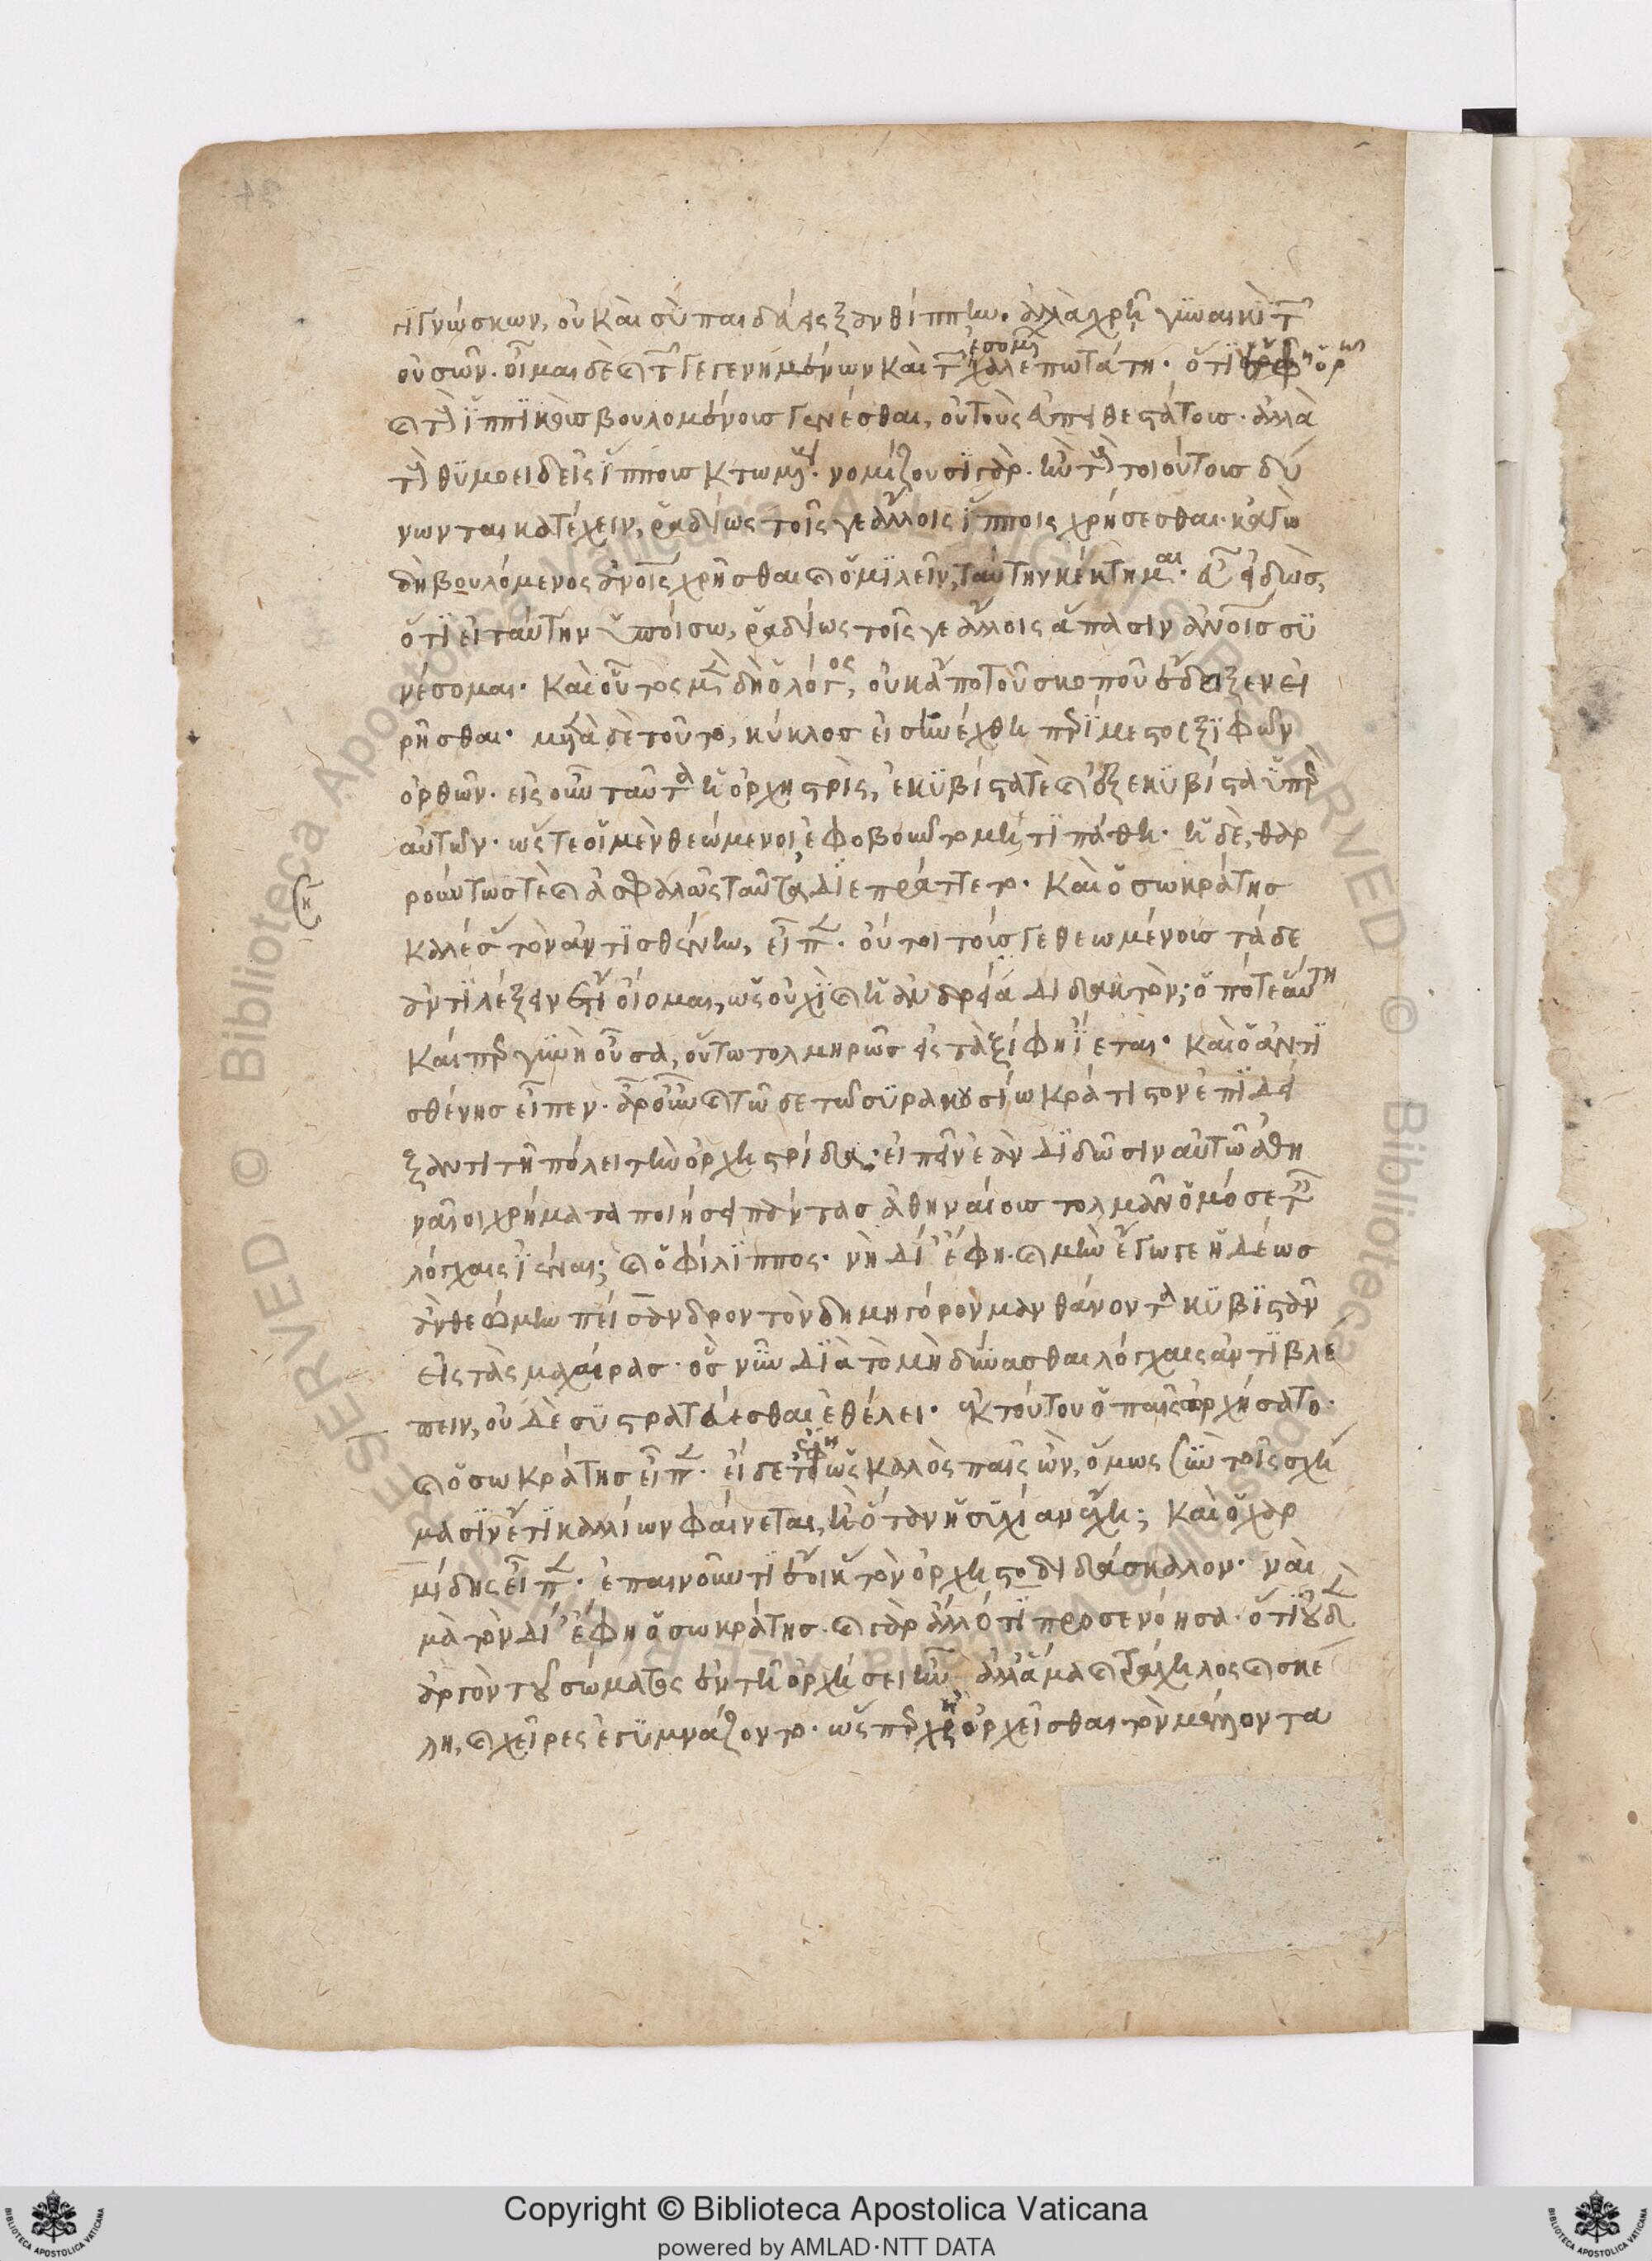 γιγνώσκων, οὐ καὶ σὺ παιδεύεις ξανθίππην. ἀλλὰ χρῇ γυναικὶ τῶν
οὐσῶν. οἶμαι δὲ καὶ τῶν γεγενημένων καὶ τῶν ἐσομένων χαλεπωτάτῃ. ὅτι ἔφη ὁρῶ
καὶ τοὺς ἱππικοὺς βουλομένους γενέσθαι, οὐ τοὺς εὐπειθεστάτους. ἀλλὰ
τοὺς θυμοειδεῖς ἵππους κτωμένους. νομίζουσι γὰρ. ἢν τοὺς τοιούτους δύ
νωνται κατέχειν, ῥαδίως τοῖς γε ἄλλοις ἵπποις χρήσεσθαι. κἀγὼ
δὴ βουλόμενος ἀνοις χρῆσθαι καὶ ὁμιλεῖν, ταύτην κέκτημαι. εὖ εἰδὼς,
ὅτι εἰ ταύτην ὑποίσω, ῥαδίως τοῖς γε ἄλλοις ἅπασιν ἀνοις συ
νέσομαι. καὶ οὗτος μὲν δὴ ὁ λόγος, οὐκ ἄπο τοῦ σκοποῦ ἔδοξεν εἰ
ρῆσθαι. μετὰ δὲ τοῦτο, κύκλος εἰσηνέχθη περίμεστος ξιφῶν
ὀρθῶν. εἰς οὖν ταῦτα ἡ ὀρχηστρὶς, ἐκυβίστα τε καὶ ἐξεκυβίστα ὑπὲρ
αὐτῶν. ὥστε οἱ μὲν θεώμενοι, ἐφοβοῦντο μή τι πάθῃ. ἡ δὲ, θαρ
ρούντως τὲ καὶ ἀσφαλῶς ταῦτα διεπράττετο. καὶ ὁ σωκράτης
καλέσας τὸν ἀντισθένην, εἶπεν. οὔτοι τούς γε θεωμένους τάδε
ἀντιλέξειν ἔτι οἴομαι, ὡς οὐχὶ καὶ ἡ ἀνδρεία διδακτὸν; ὁπότε αὕτη
καίπερ γυνὴ οὖσα, οὕτω τολμηρῶς εἰς τὰ ξίφη ἵεται. καὶ ὁ ἀντι
σθένης εἶπεν. ἆρ' οὖν καὶ τῷδε τῷ συρακουσίω κράτιστον ἐπιδεί
ξαντι τῇ πόλει τὴν ὀρχηστρίδα; εἰπεῖν ἐὰν διδῶσιν αὐτῷ ἀθη
ναῖοι χρήματα ποιήσειν πάντας ἀθηναίους τολμᾶν ὁμόσε ταῖς
λόγχαις ἰέναι; καὶ ὁ φίλιππος. νὴ δί' ἔφη. καὶ μὴν ἔγωγε ἡδέως
ἂν θεώμην πείσανδρον τὸν δημηγόρον μανθάνοντα κυβιστᾶν
εἰς τὰς μαχαίρας. ὃς νῦν διὰ τὸ μὴ δύνασθαι λόγχαις ἀντιβλέ
πειν, οὐδὲ συστρατεύεσθαι ἐθέλει. ἐκ τούτου ὁ παῖς ὠρχήσατο.
καὶ ὁ σωκράτης εἶπεν. εἴδετε ἔφη ὡς καλὸς παῖς ὢν, ὅμως σὺν τοῖς σχή
μασιν ἔτι καλλίων φαίνεται, ἢ ὅταν ἡσυχίαν ἔχῃ; καὶ ὁ χαρ
μίδης εἶπεν. ἐπαινοῦντι ἔοικας τὸν ὀρχηστοδιδάσκαλον. ναὶ
μὰ τὸν δί' ἔφη ὁ σωκράτης. καὶ γὰρ ἄλλό τι προσενόησα. ὅτι οὐδὲν
ἀργὸν τοῦ σώματος ἐν τῇ ὀρχήσει ἦν ἀλλ' ἅμα καὶ τράχηλος καὶ σκέ
λη, καὶ χεῖρες ἐγυμνάζοντο. ὥσπερ χρὴ ὀρχεῖσθαι τὸν μέλλοντα